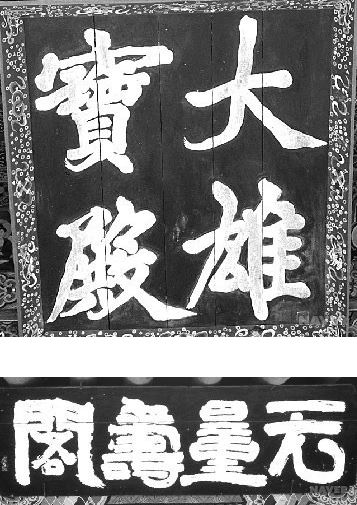 大雄
寶殿
NAVER
无量壽閣
NAVER